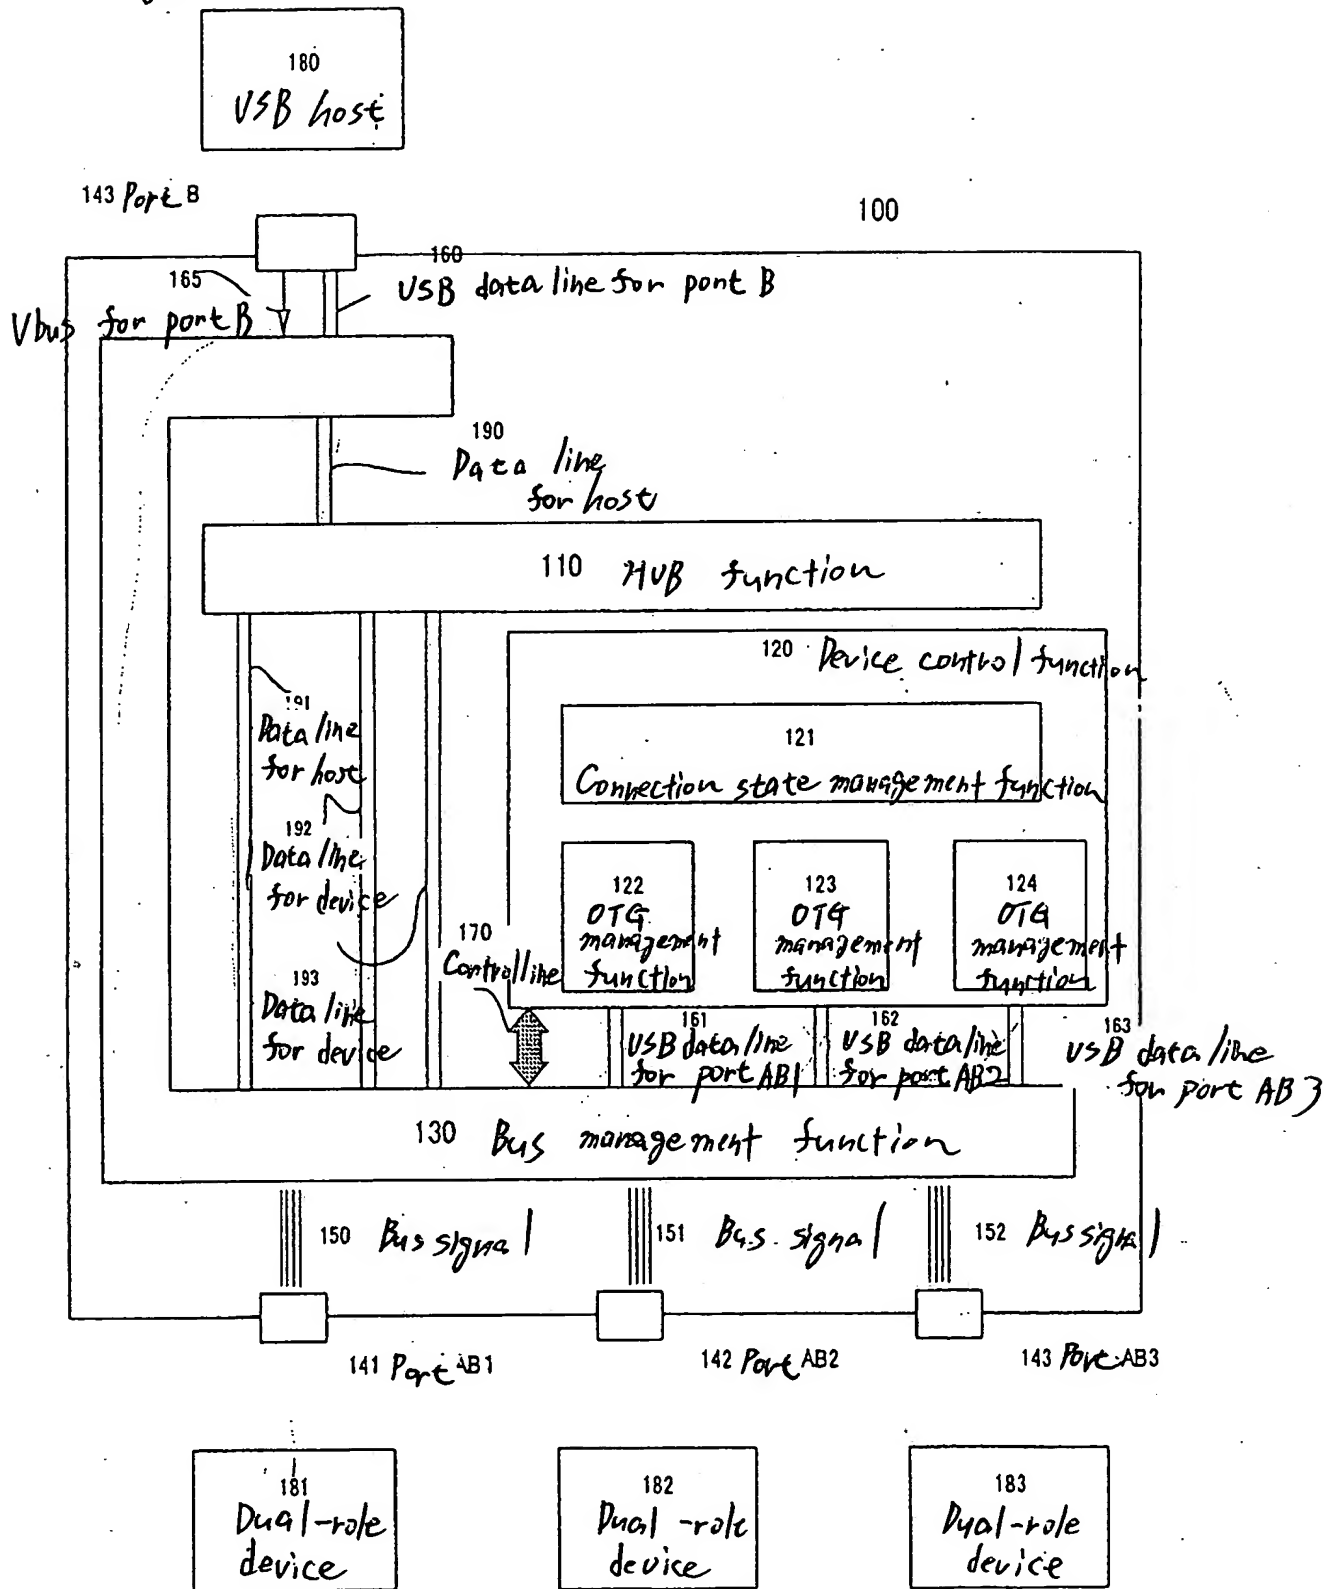 180
USB host
143 Port B
100
160
165
USB data line for port B
Vbus for port B
190
Data line
for host
110 HUB function
120 Device control function
191
Data line
for host
121
Connection state management function
192
Data line
for device
122
OTG
management
function
123
OTG
management
function
124
OTG
management
function
170
Control line
193
Data line
for device
161
USB data line
for port AB1
162
USB data line
for port AB2
163
USB data line
for port AB3
130 Bus management function
150 Bus signal
151 Bus signal
152 Bus signal
141 Port AB1
142 Port AB2
143 Port AB3
181
Dual-role
device
182
Dual-role
device
183
Dual-role
device